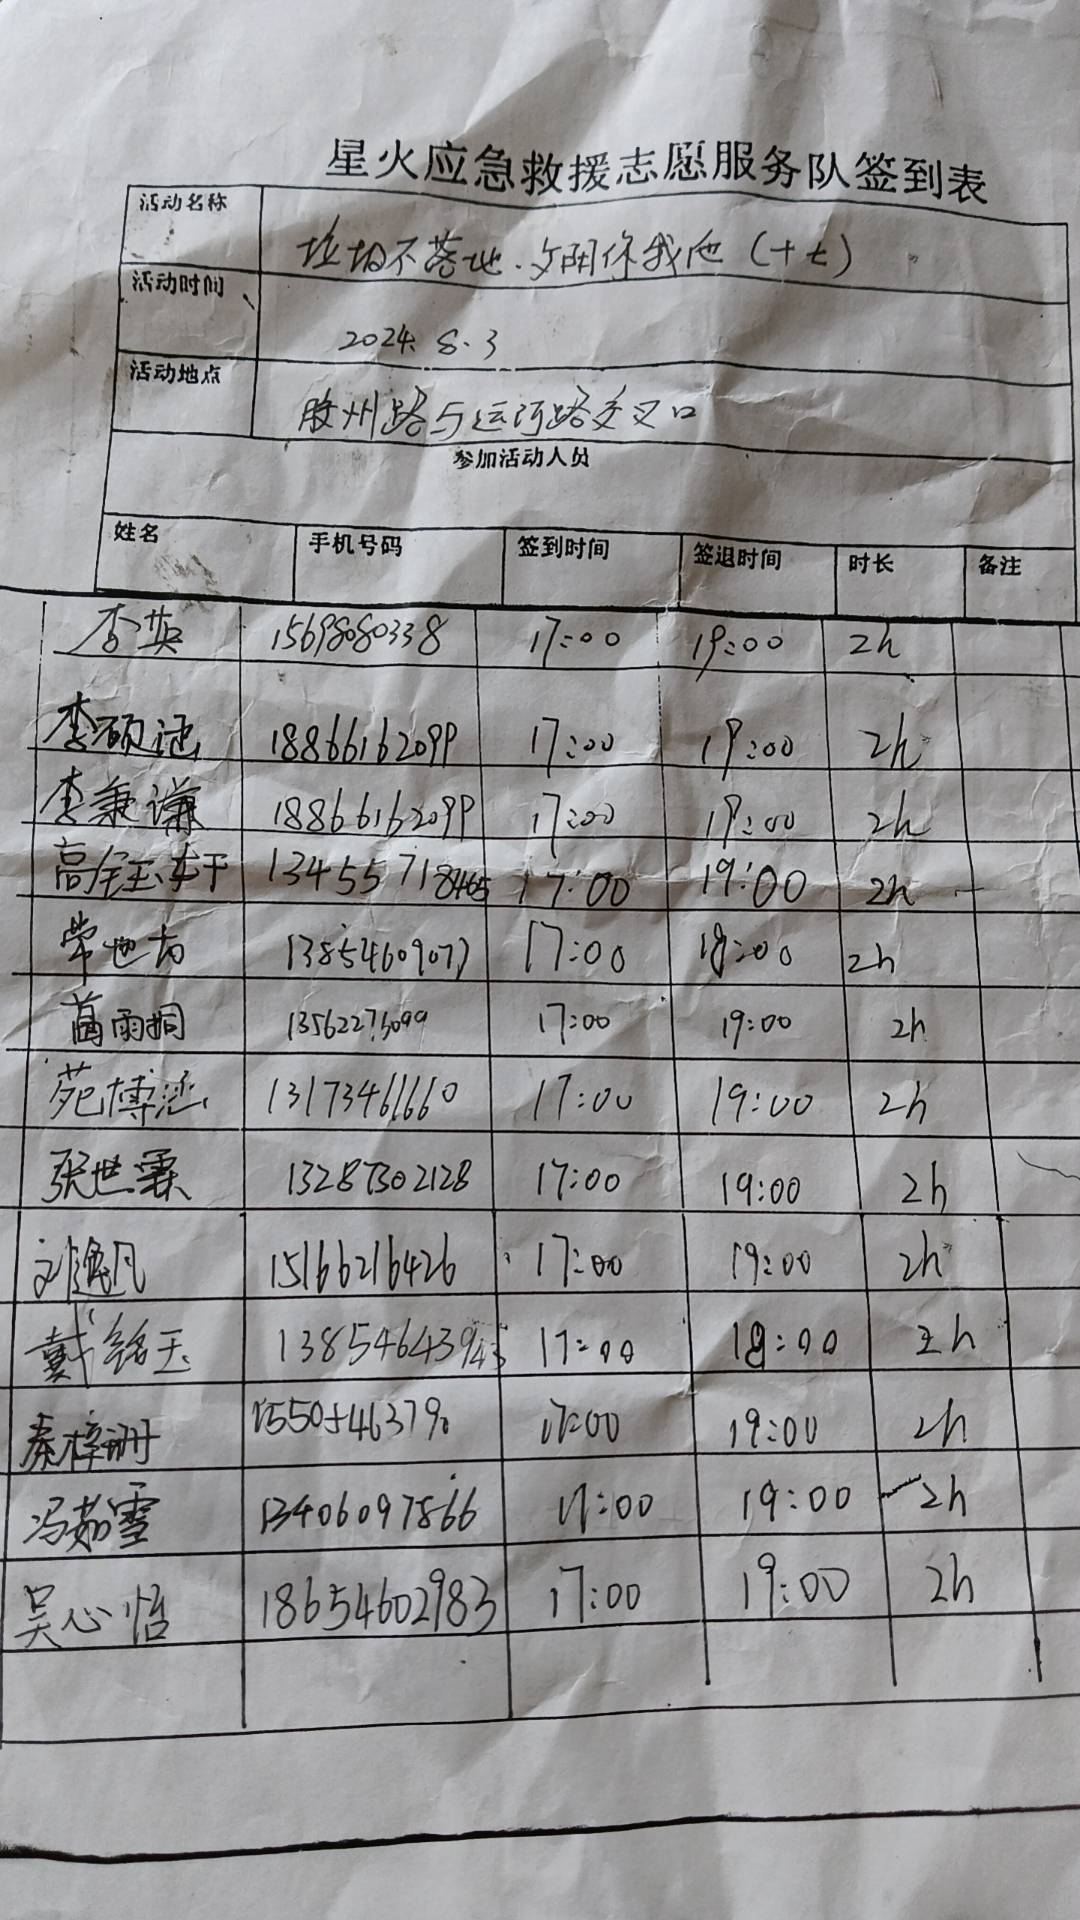 星火应急救援志愿服务队签到表
活动名称 垃圾不落地.文明你我他（十七）
活动时间 2024.8.3
活动地点 胶州路与运河路交叉口
参加活动人员
姓名 手机号码 签到时间 签退时间 时长 备注
李英 15698080338 17:00 19:00 2h
李硕涵 18866162099 17:00 19:00 2h
李秉谦 18866162099 17:00 19:00 2h
高 13455718465 17:00 19:00 2h
常 13854609077 17:00 19:00 2h
葛雨桐 13562273099 17:00 19:00 2h
苑博涵 13173461660 17:00 19:00 2h
张世霖 13287302128 17:00 19:00 2h
刘逸凡 15166216426 17:00 19:00 2h
戴铭玉 13854643943 17:00 19:00 2h
秦梓珊 15505463790 17:00 19:00 2h
冯茹雪 13406097866 17:00 19:00 2h
吴心怡 18654602983 17:00 19:00 2h